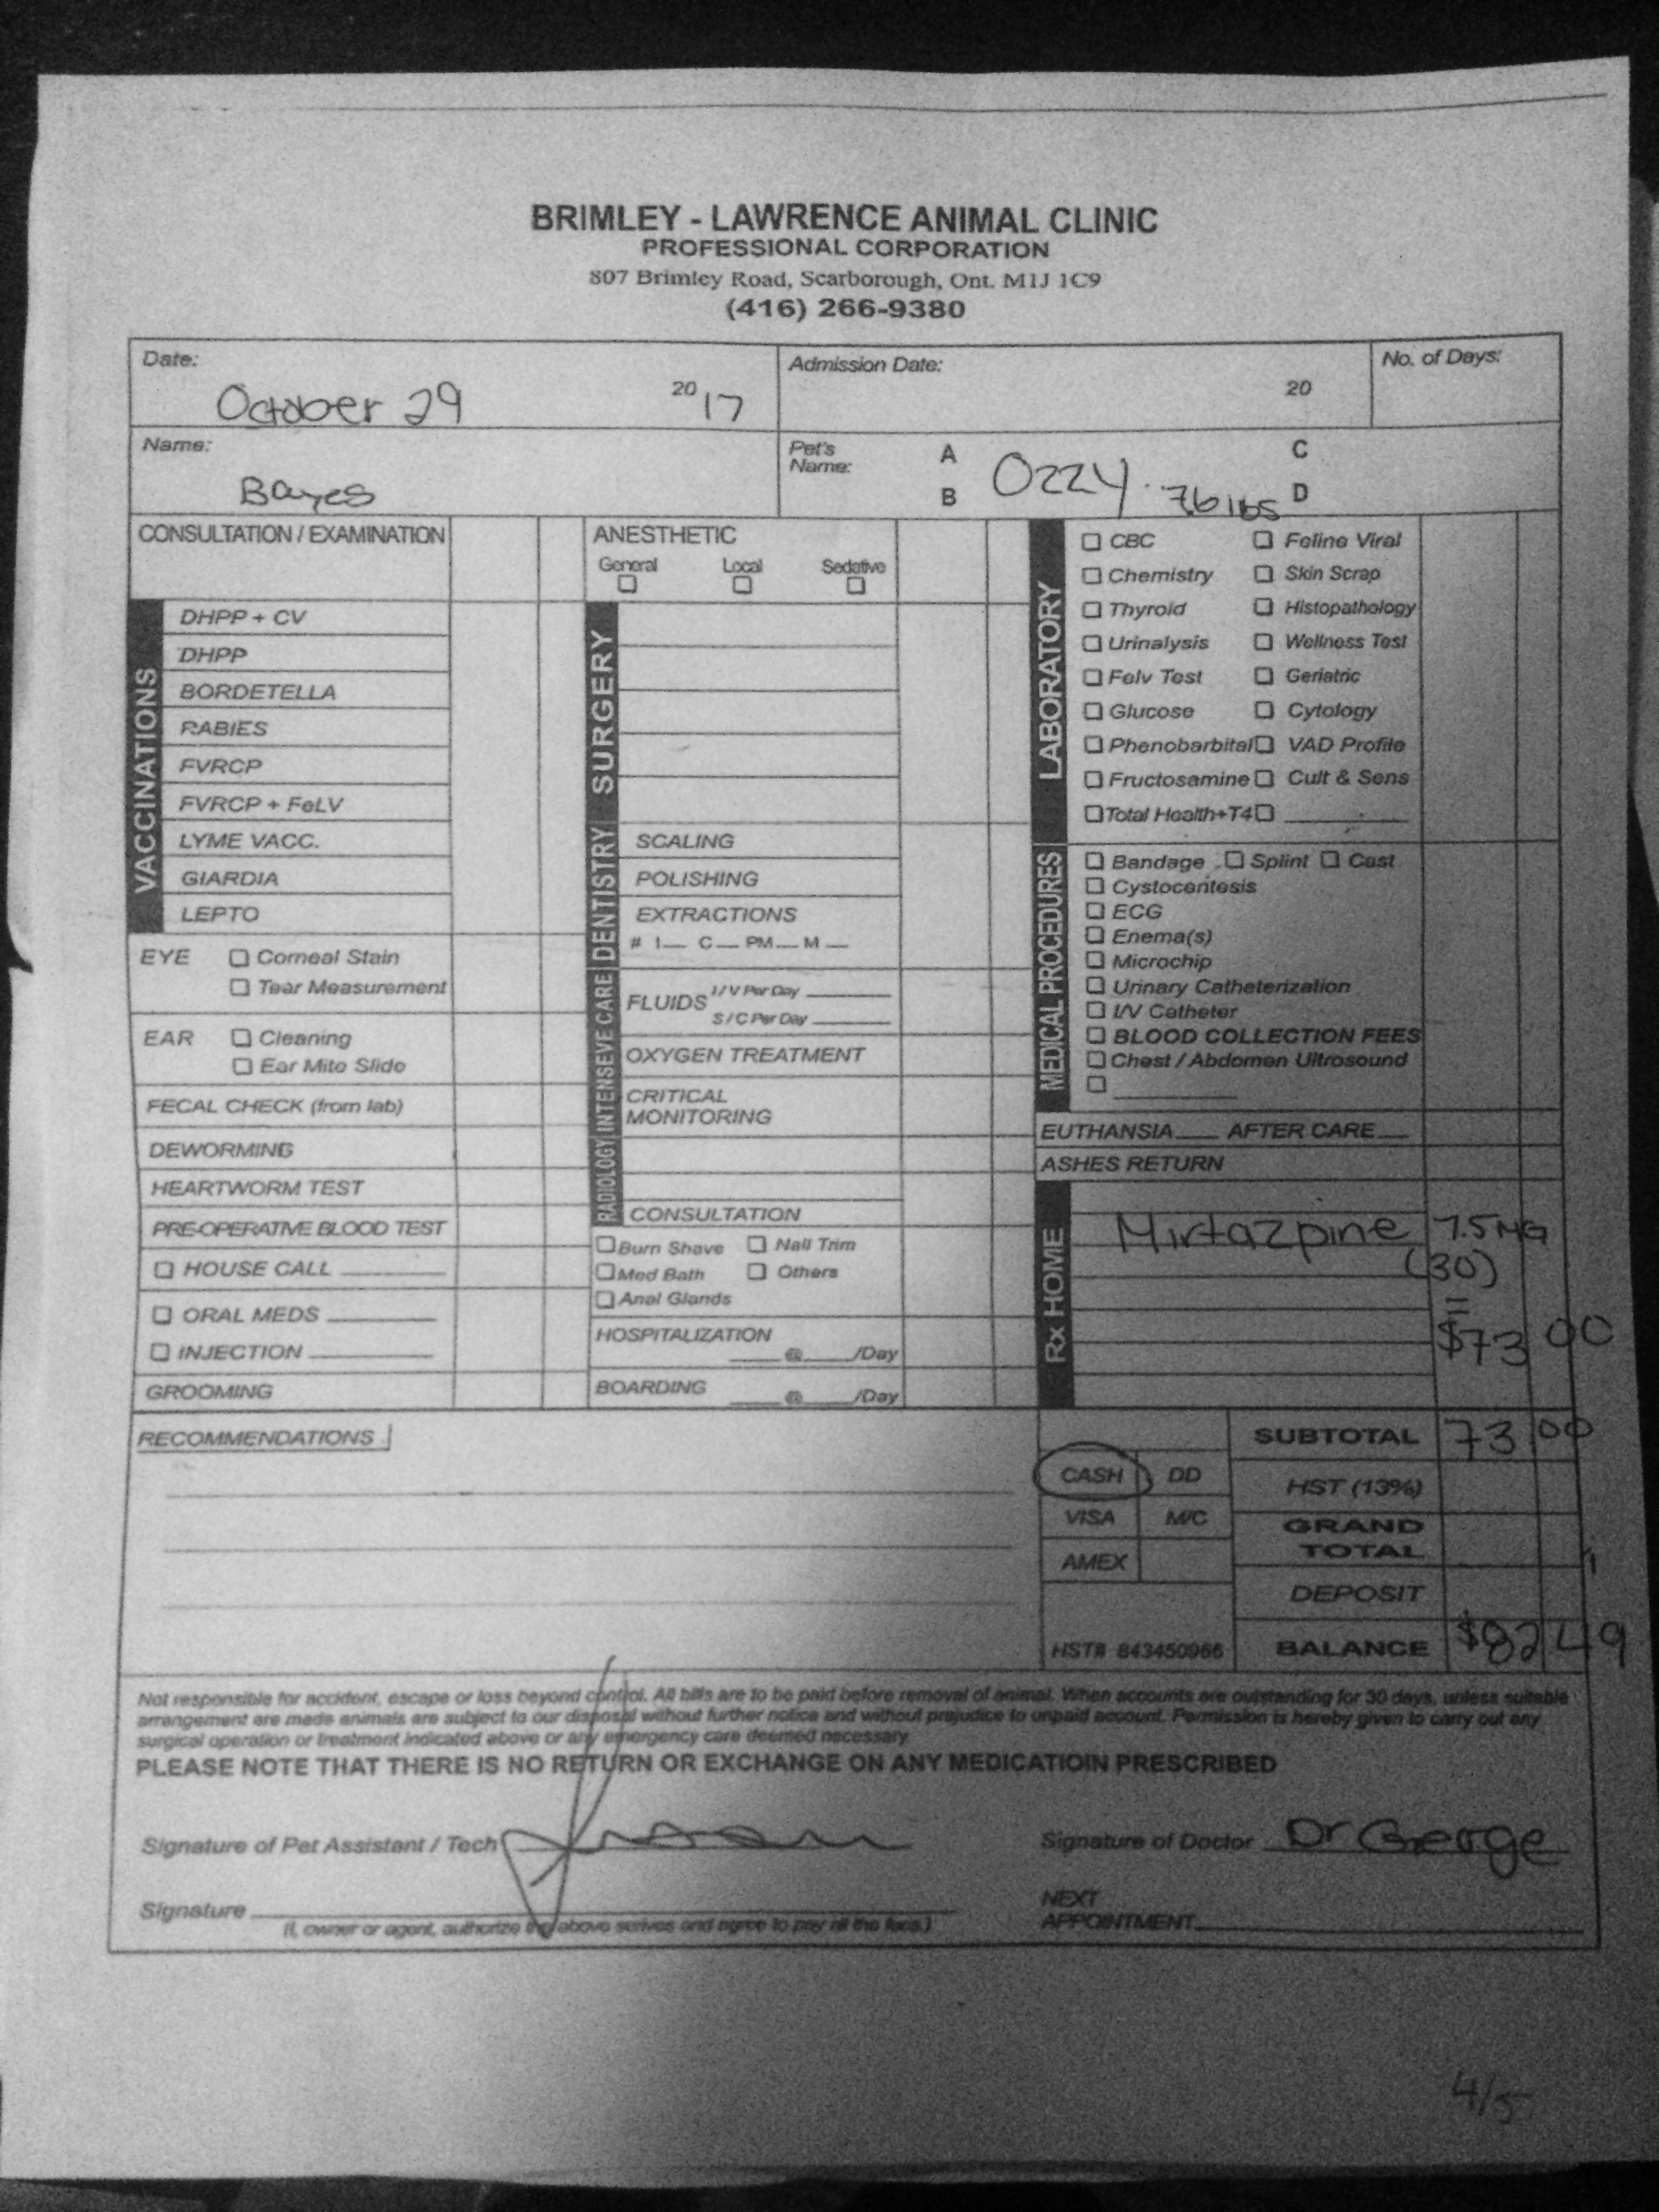 BRIMLEY - LAWRENCE ANIMAL CLINIC
PROFESSIONAL CORPORATION
807 Brimley Road, Scarborough, Ont. M1J 1C9
(416) 266-9380
Date: October 29 2017
Admission Date: 20
No. of Days:
Name: Bayes
Pet's Name: A B Ozzy 76 lbs C D
CONSULTATION / EXAMINATION
VACCINATIONS
DHPP + CV
DHPP
BORDETELLA
RABIES
FVRCP
FVRCP + FeLV
LYME VACC.
GIARDIA
LEPTO
EYE ☐ Corneal Stain
☐ Tear Measurement
EAR ☐ Cleaning
☐ Ear Mite Slide
FECAL CHECK (from lab)
DEWORMING
HEARTWORM TEST
PRE-OPERATIVE BLOOD TEST
☐ HOUSE CALL
☐ ORAL MEDS
☐ INJECTION
GROOMING
ANESTHETIC
General Local Sedative
☐ ☐ ☐
SURGERY
DENTISTRY
SCALING
POLISHING
EXTRACTIONS
# I__ C__ PM__ M__
INTENSEVE CARE
FLUIDS I/V Per Day
S/C Per Day
OXYGEN TREATMENT
CRITICAL
MONITORING
RADIOLOGY
CONSULTATION
☐ Burn Shave ☐ Nail Trim
☐ Med Bath ☐ Others
☐ Anal Glands
HOSPITALIZATION
____@____/Day
BOARDING ____@____/Day
LABORATORY
☐ CBC ☐ Feline Viral
☐ Chemistry ☐ Skin Scrap
☐ Thyroid ☐ Histopathology
☐ Urinalysis ☐ Wellness Test
☐ Felv Test ☐ Geriatric
☐ Glucose ☐ Cytology
☐ Phenobarbital ☐ VAD Profile
☐ Fructosamine ☐ Cult & Sens
☐ Total Health+T4 ☐ ____
MEDICAL PROCEDURES
☐ Bandage ☐ Splint ☐ Cast
☐ Cystocentesis
☐ ECG
☐ Enema(s)
☐ Microchip
☐ Urinary Catheterization
☐ I/V Catheter
☐ BLOOD COLLECTION FEES
☐ Chest / Abdomen Ultrosound
☐ ____
EUTHANSIA____ AFTER CARE____
ASHES RETURN
Rx HOME
Mirtazpine 7.5 MG
(30)
=
$73 00
RECOMMENDATIONS
CASH DD
VISA M/C
AMEX
HST# 843450966
SUBTOTAL 73 00
HST (13%)
GRAND
TOTAL
DEPOSIT
BALANCE $82 49
Not responsible for accident, escape or loss beyond control. All bills are to be paid before removal of animal. When accounts are outstanding for 30 days, unless suitable
arrangement are made animals are subject to our disposal without further notice and without prejudice to unpaid account. Permission is hereby given to carry out any
surgical operation or treatment indicated above or any emergency care deemed necessary.
PLEASE NOTE THAT THERE IS NO RETURN OR EXCHANGE ON ANY MEDICATIOIN PRESCRIBED
Signature of Pet Assistant / Tech
Signature of Doctor Dr George
Signature
(I, owner or agent, authorize the above serives and agree to pay all the fees.)
NEXT
APPOINTMENT
4/5